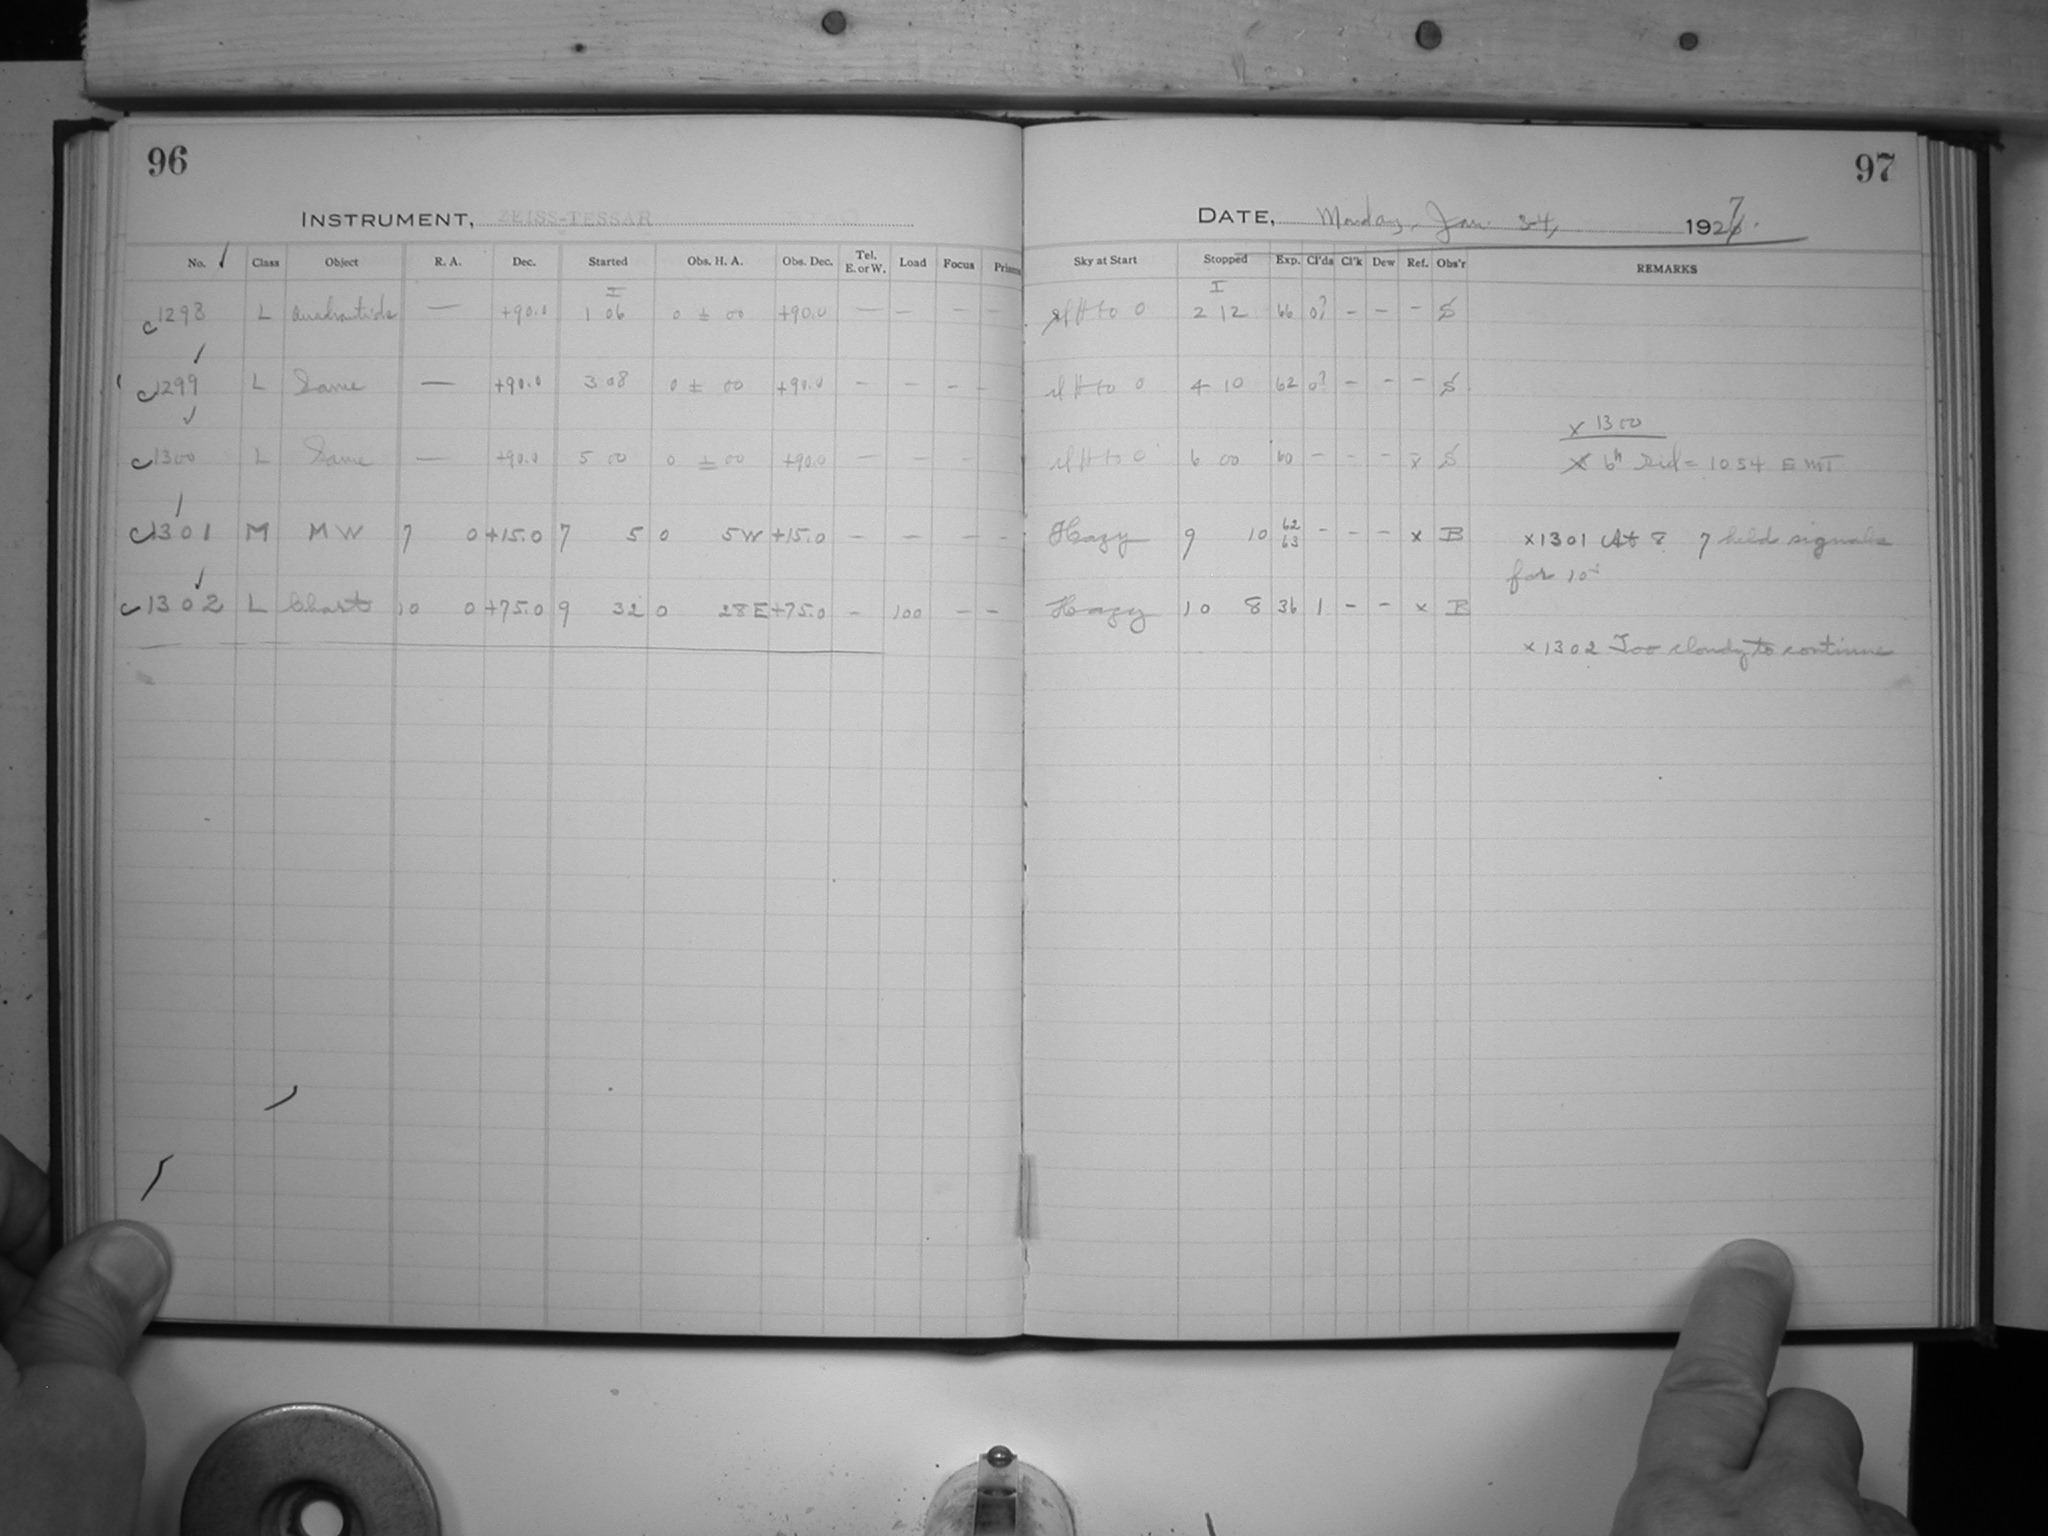 96
97
INSTRUMENT, ZEISS-TESSAR
DATE, Monday, Jan. 3-4, 1927.
No. Class Object R. A. Dec. Started Obs. H. A. Obs. Dec. Tel. E. or W. Load Focus Prisms Sky at Start Stopped Exp. Cl'ds Cl'k Dew Ref. Obs'r REMARKS
I I
c1298 L Quadrantids — +90.0 1 06 0 ± 00 +90.0 — — — — to 0 2 12 66 0? — — — S
c1299 L Same — +90.0 3 08 0 ± 00 +90.0 — — — — to 0 4 10 62 0? — — — S
x 1300
c1300 L Same — +90.0 5 00 0 ± 00 +90.0 — — — to 0 6 00 60 — — — x S x 6h Sid = 10 54 EMT
c1301 M MW 7 0 +15.0 7 5 0 5W +15.0 — — — — Hazy 9 10 62 63 — — — x B x1301 At 8 7 held signals
for 10s
c1302 L Chart 10 0 +75.0 9 32 0 28E +75.0 — 100 — — Hazy 10 8 36 1 — — x B
x1302 Too cloudy to continue